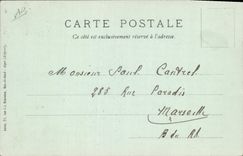 CARTE POSTALE
Ce côté est exclusivement réservé à l'adresse.
Monsieur Paul Cantrel
288 Rue Paradis
Marseille
B du Rh